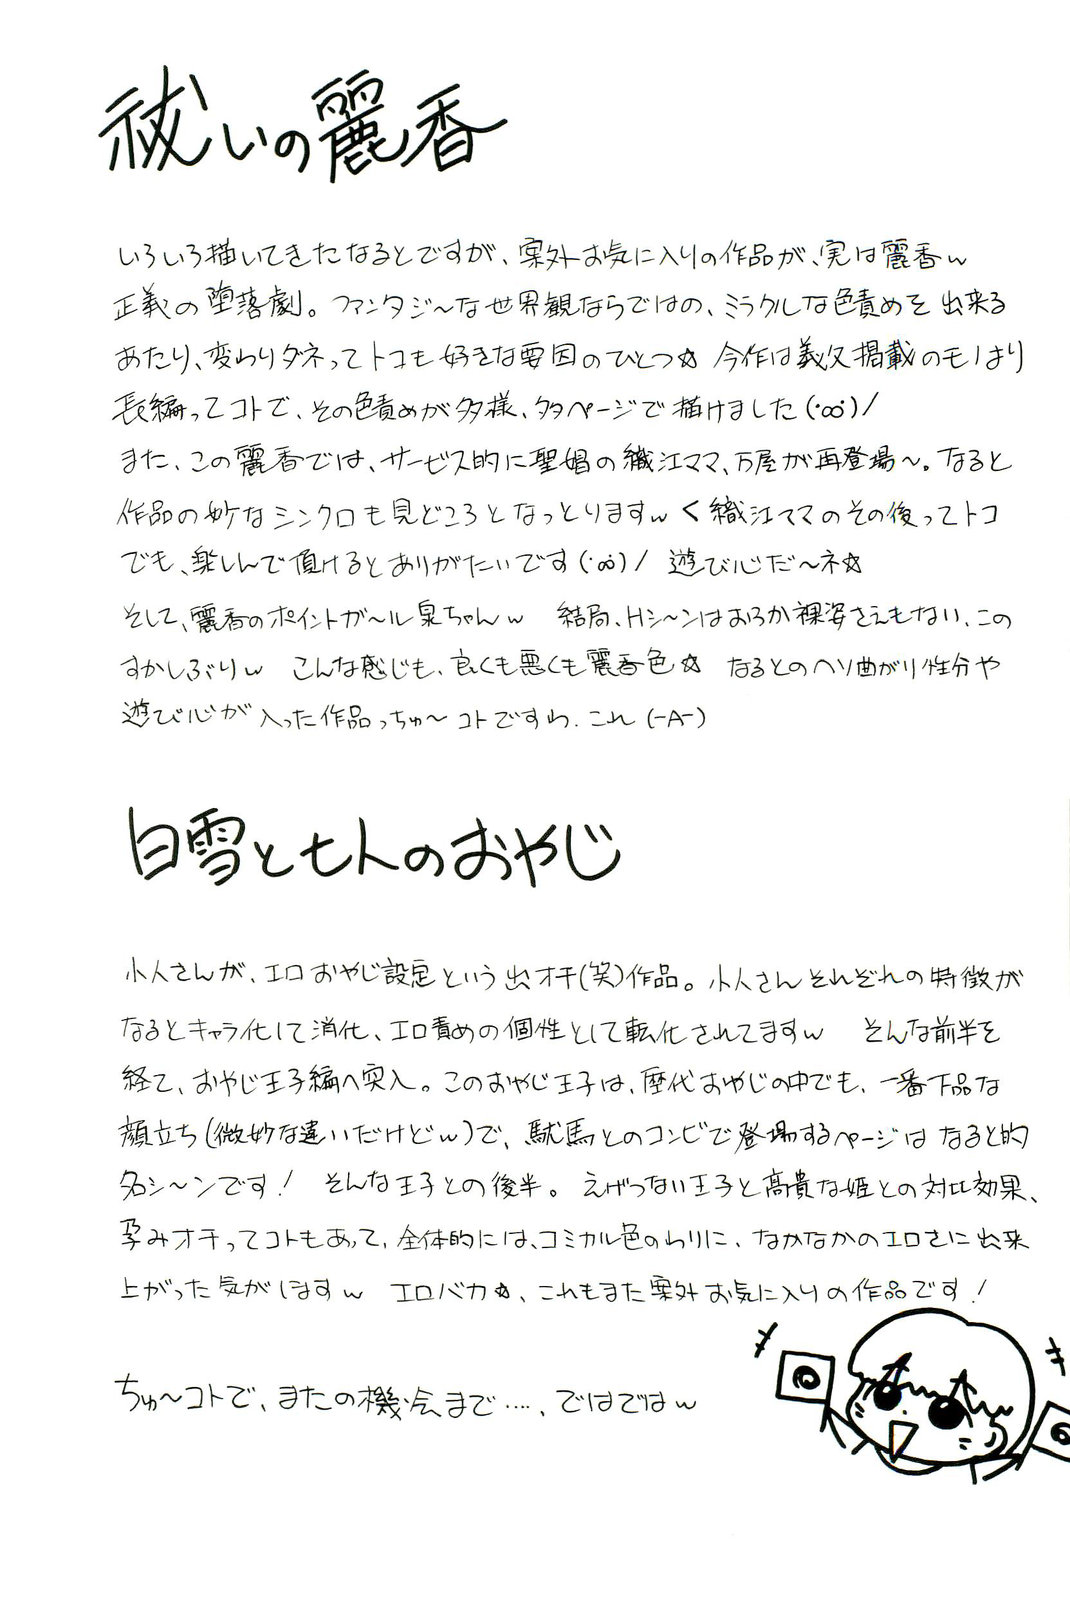 祓いの麗香
いろいろ描いてきたなるとですが、案外お気に入りの作品が、実は麗香w
正義の堕落劇。ファンタジ〜な世界観ならではの、ミラクルな色責めを出来る
あたり、変わりダネってトコも好きな要因のひとつ☆ 今作は義父掲載のモノはり
長編ってコトで、その色責めが多様、多ページで描けました(·∞·)/
また、この麗香では、サービス的に聖娼の織江ママ、万屋が再登場〜。なると
作品の妙なシンクロも見どころとなっとりますw く織江ママのその後ってトコ
でも、楽しんで頂けるとありがたいです(·∞·)/ 遊び心だ〜ネ☆
そして、麗香のポイントガ〜ル泉ちゃんw 結局、Hシ〜ンはおろか裸姿さえもない、この
すかしぶりw こんな感じも、良くも悪くも麗香色☆ なるとのヘソ曲がり性分や
遊び心が入った作品っちゅ〜コトですわ.これ(-A-)
白雪と七人のおやじ
小人さんが、エロおやじ設定という出オチ(笑)作品。小人さんそれぞれの特徴が
なるとキャラ化して消化、エロ責めの個性として転化されてますw そんな前半を
経て、おやじ王子編へ突入。このおやじ王子は、歴代おやじの中でも、一番下品な
顔立ち(微妙な違いだけどw)で、駄馬とのコンビで登場するページはなると的
名シ〜ンです! そんな王子との後半。えげつない王子と高貴な姫との対比効果、
孕みオチってコトもあって、全体的には、コミカル色のわりに、なかなかのエロさに出来
上がった気がしますw エロバカ☆、これもまた案外お気に入りの作品です!
ちゅ〜コトで、またの機会まで....、ではではw